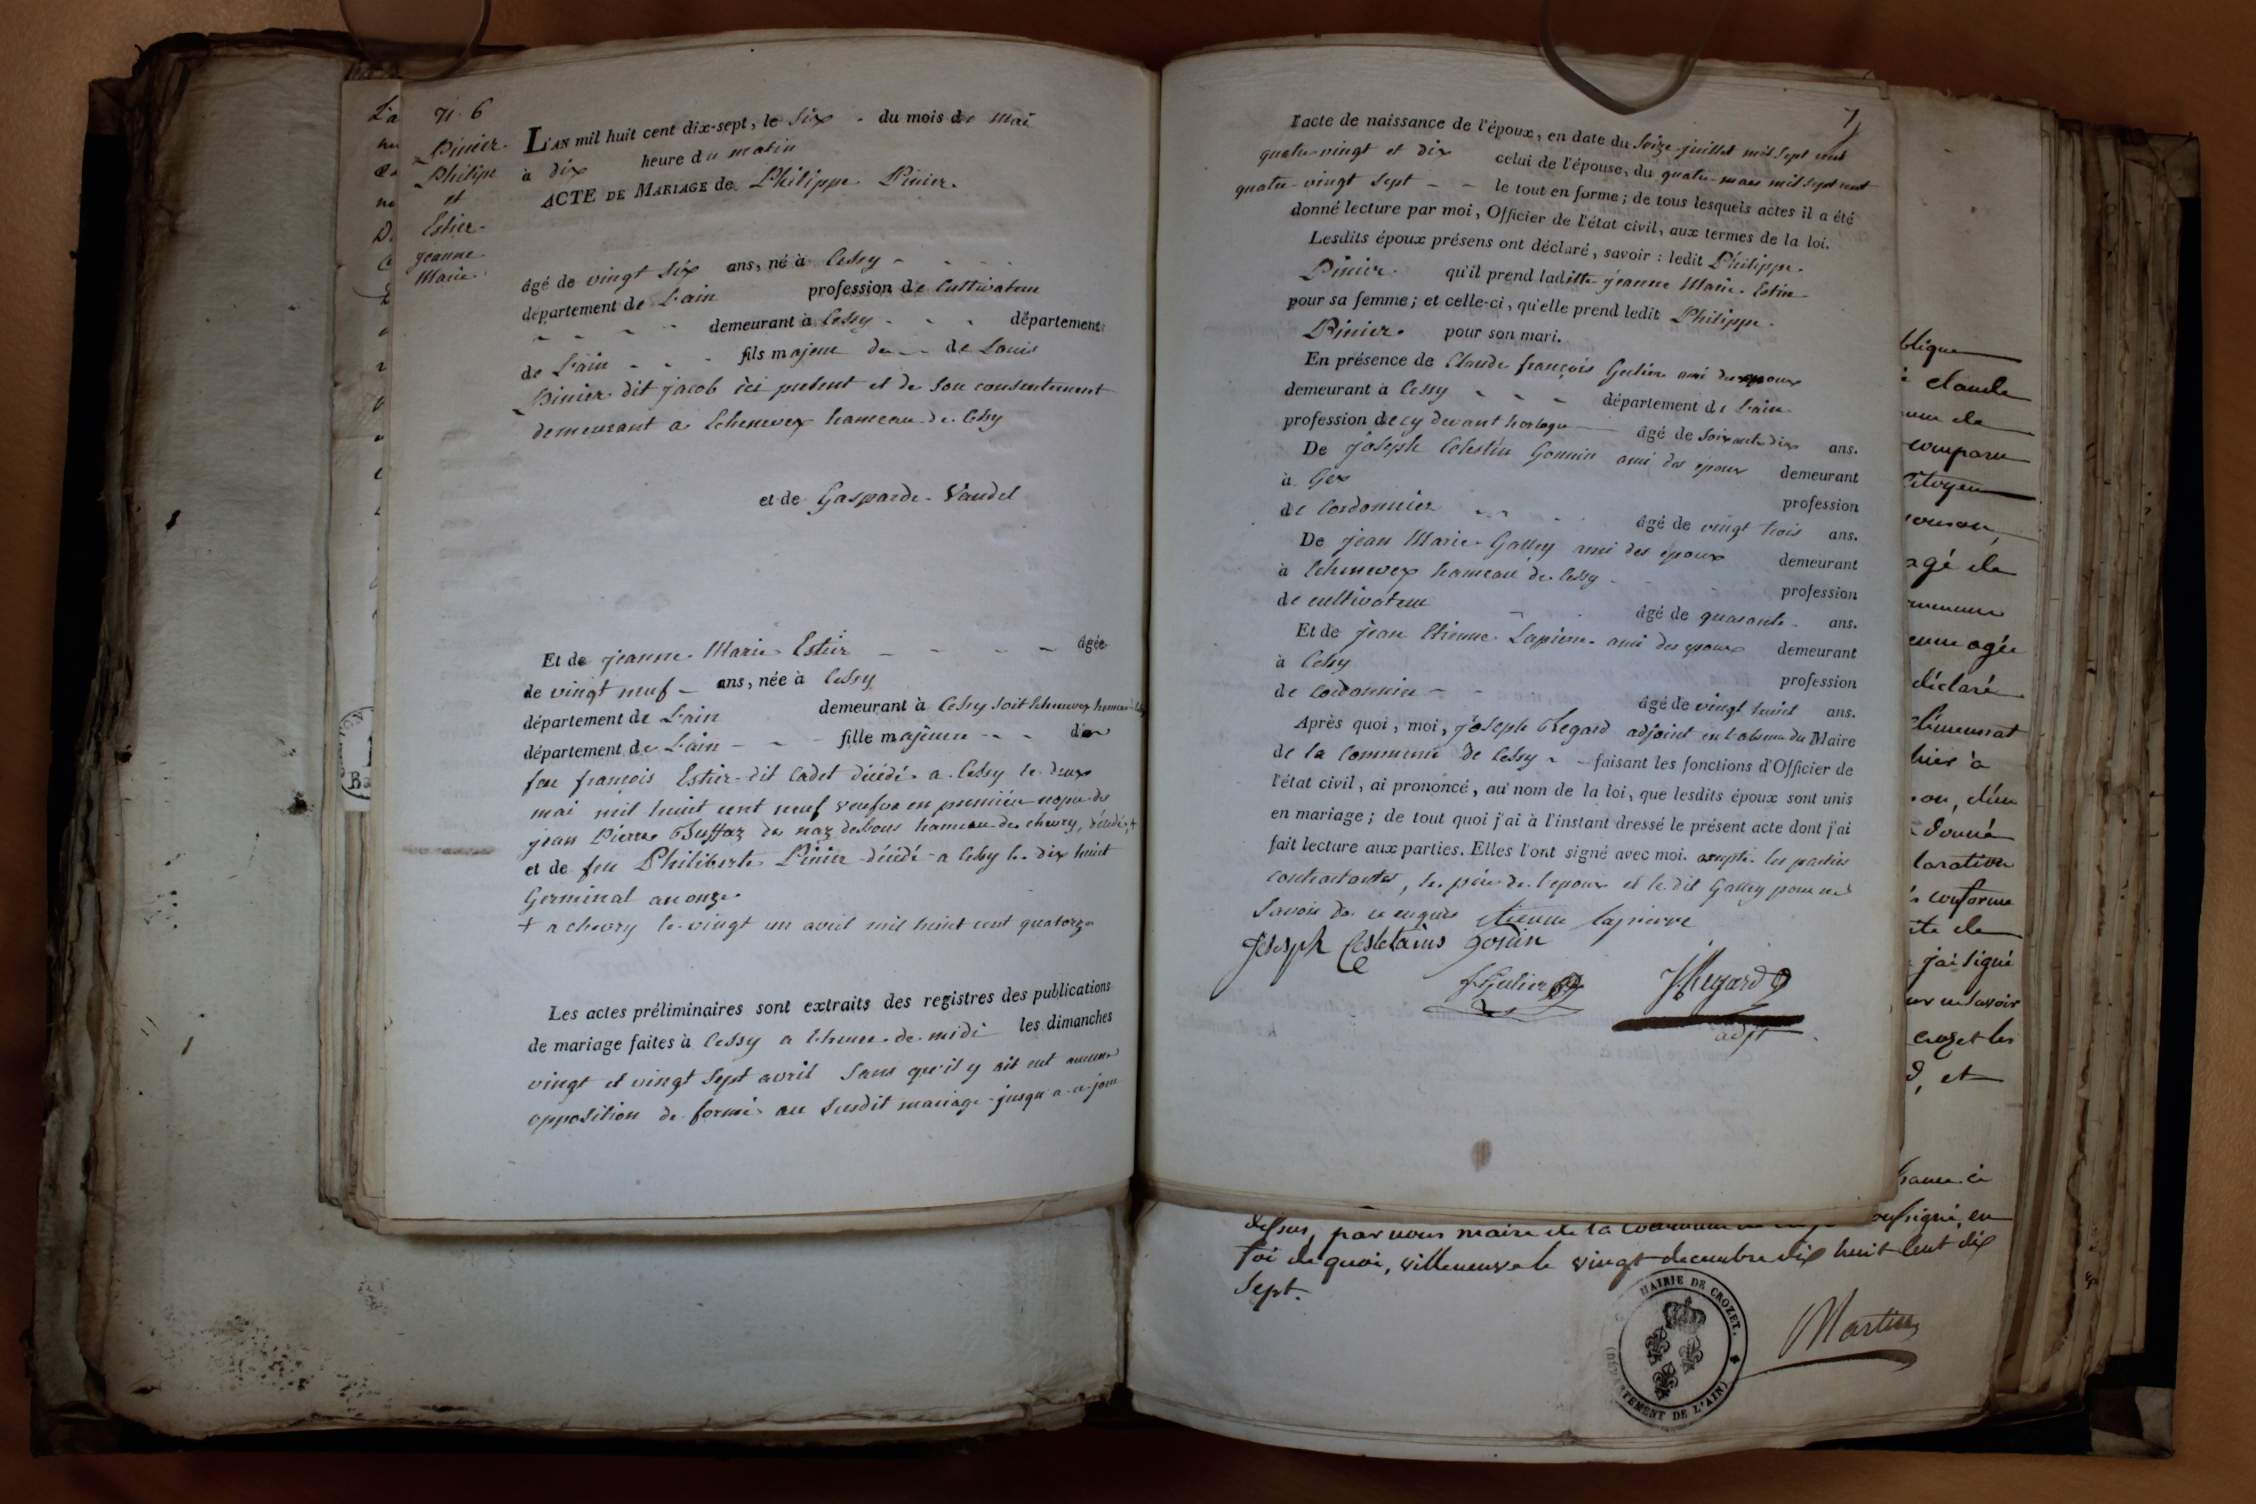 n. 6
Pinier
Philipe
et
Estier
jeanne
Marie
L'AN mil huit cent dix-sept, le Six du mois de Mai
à dix heure du matin
ACTE DE MARIAGE de Philippe Pinier
âgé de vingt Six ans, né à Cessy
département de L'ain profession de Cultivateur
demeurant à Cessy département
de L'ain fils majeur de Louis
Pinier dit jacob ici present et de Son consentement
demeurant a Echenevex hameau de Cessy
et de Gasparde Vaudel
Et de jeanne Marie Estier âgée
de vingt neuf ans, née à Cessy
département de L'ain demeurant à Cessy soit Echenevex hameau
département de L'ain fille majeure de
feu françois Estier dit Cadet décédé a Cessy le deux
mai mil huit cent neuf veufve en premiere nopce de
jean Pierre Buffaz de naz dessous hameau de chevry, décédé +
et de feu Philiberte Pinier décédé a Cessy le dix huit
Germinal an onze
+ a chevry le vingt un avril mil huit cent quatorze
Les actes préliminaires sont extraits des registres des publications
de mariage faites à Cessy a l'heure de midi les dimanches
vingt et vingt Sept avril Sans qu'il y ait eut aucune
opposition de formé au Susdit mariage jusqu'a ce jour
7
l'acte de naissance de l'époux, en date du Seize juillet mil Sept cent
quatre vingt et dix celui de l'épouse, du quatre mars mil Sept cent
quatre vingt Sept le tout en forme; de tous lesquels actes il a été
donné lecture par moi, Officier de l'état civil, aux termes de la loi.
Lesdits époux présens ont déclaré, savoir : ledit Philippe
Pinier qu'il prend laditte jeanne Marie Estier
pour sa femme; et celle-ci, qu'elle prend ledit Philippe
Pinier pour son mari.
En présence de Claude françois Gulier ami des époux
demeurant à Cessy département de L'ain
profession de cy devant horloger âgé de Soixante dix ans.
De joseph Celestin Gonnin ami des époux demeurant
à Gex profession
de Cordonnier âgé de vingt trois ans.
De jean Marie Galley ami des époux demeurant
à Echenevex hameau de Cessy profession
de cultivateur âgé de quarante ans.
Et de jean Etienne Lapierre ami des époux demeurant
à Cessy profession
de Cordonnier âgé de vingt huit ans.
Après quoi, moi, joseph Regard adjoint en l'absence du Maire
de la Commune de Cessy faisant les fonctions d'Officier de
l'état civil, ai prononcé, au nom de la loi, que lesdits époux sont unis
en mariage; de tout quoi j'ai à l'instant dressé le présent acte dont j'ai
fait lecture aux parties. Elles l'ont signé avec moi. excepté les parties
contractantes, le père de l'époux et le dit Galley pour ne
Savoir de ce enquis etienne lapierre
Joseph gonin
J Gulier J Regard
adjt
blique
claude
comparu
Citoyen
agé de
agée
déclaré
à
Donné
laration
conforme
j'ai signé
Crozet les
et
dessus, par nous maire de la Commune de soussigné, en
foi de quoi, villeneuve le vingt decembre dix huit Cent dix
Sept.
MAIRIE DE CROZET.
(DÉPARTEMENT DE L'AIN)
Martin